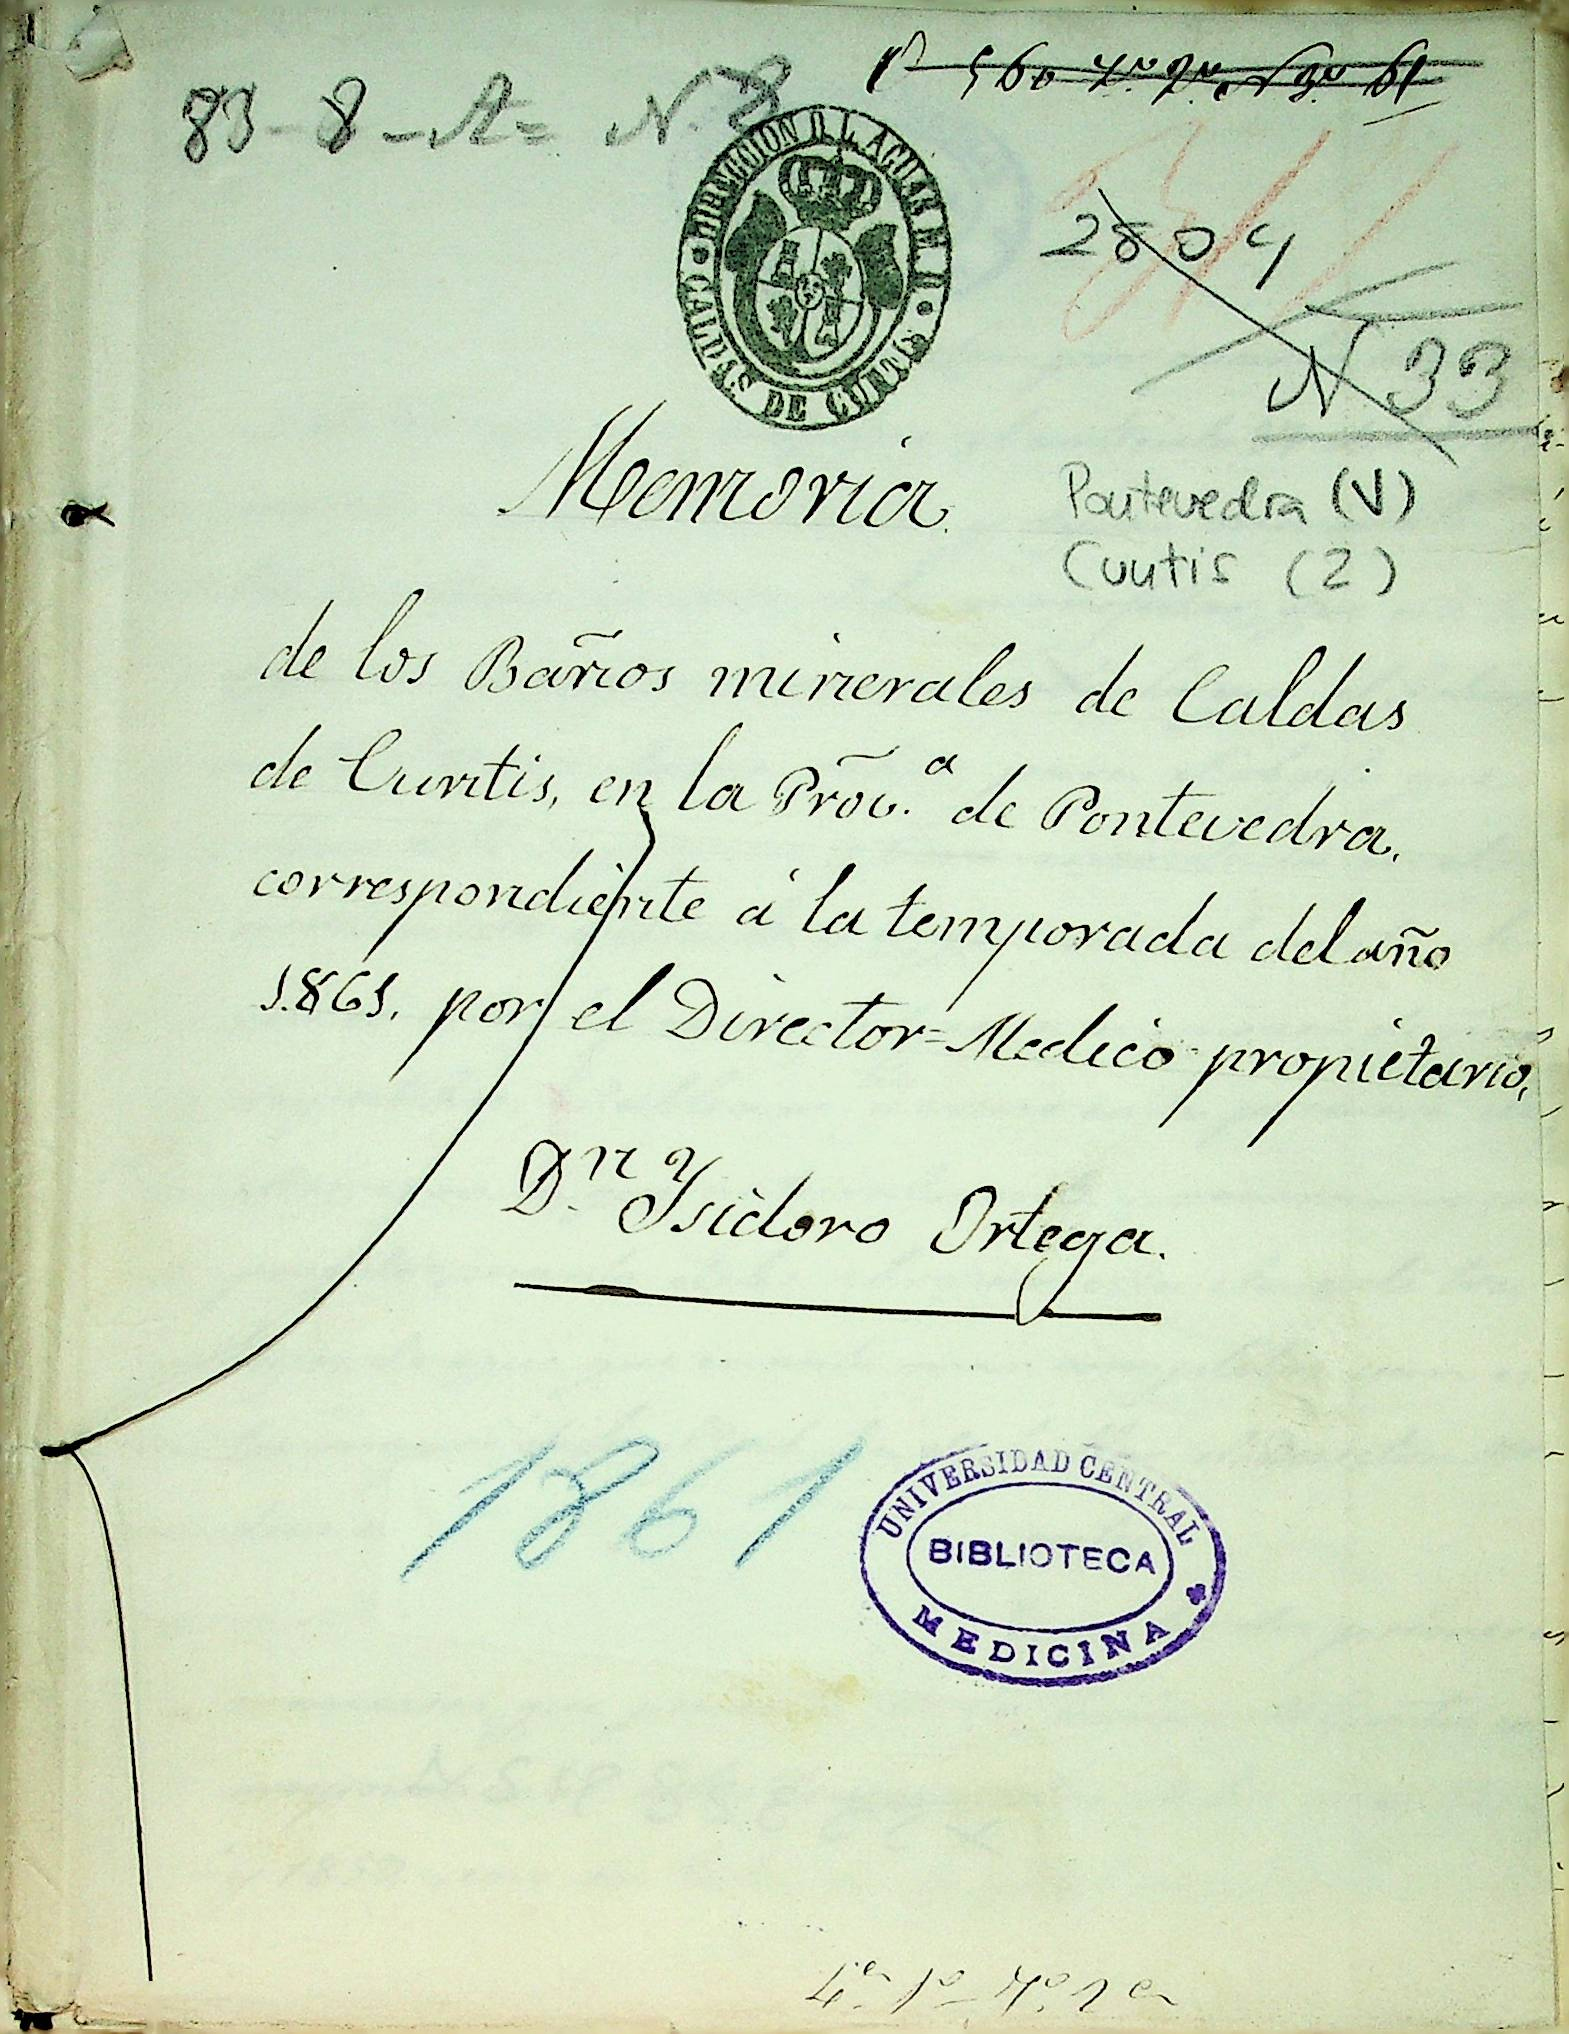 83-8-A= N.8
DIRECCION D L AGUAS M.
CALDAS DE CUNTIS
2804
N 33
Memoria
Pontevedra (V)
Cuntis (2)
de los Baños minerales de Caldas
de Cuntis, en la Prov.ª de Pontevedra,
correspondiente á la temporada del año
1.861, por el Director=Medico propietario,
D.n Ysidoro Ortega.
1861
UNIVERSIDAD CENTRAL
BIBLIOTECA
MEDICINA